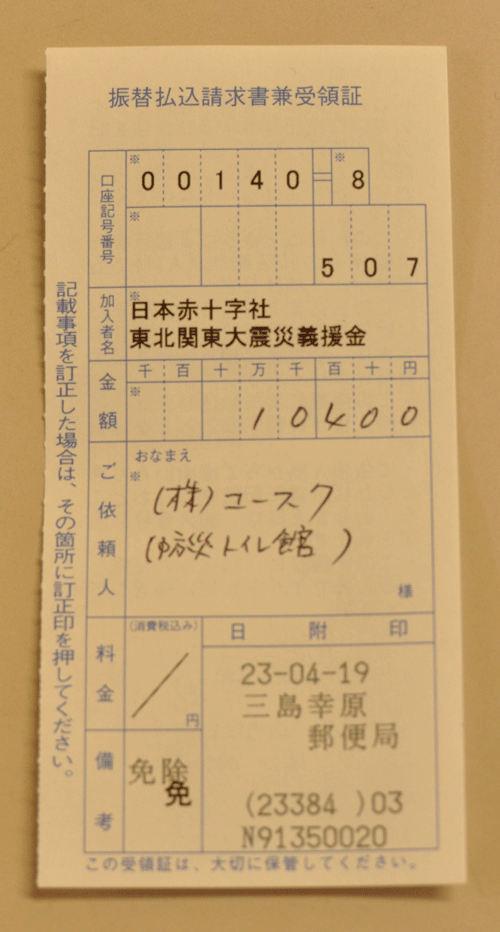 振替払込請求書兼受領証
口座記号番号
※
00140=
※
8
※
507
加入者名
※
日本赤十字社
東北関東大震災義援金
金額
千百十万千百十円
※
10400
ご依頼人
おなまえ
※
(株)ユースク
(防災トイレ館)
様
料金
(消費税込み)
円
日附印
23-04-19
三島幸原
郵便局
(23384 )03
N91350020
備考
免除
免
この受領証は、大切に保管してください。
記載事項を訂正した場合は、その箇所に訂正印を押してください。